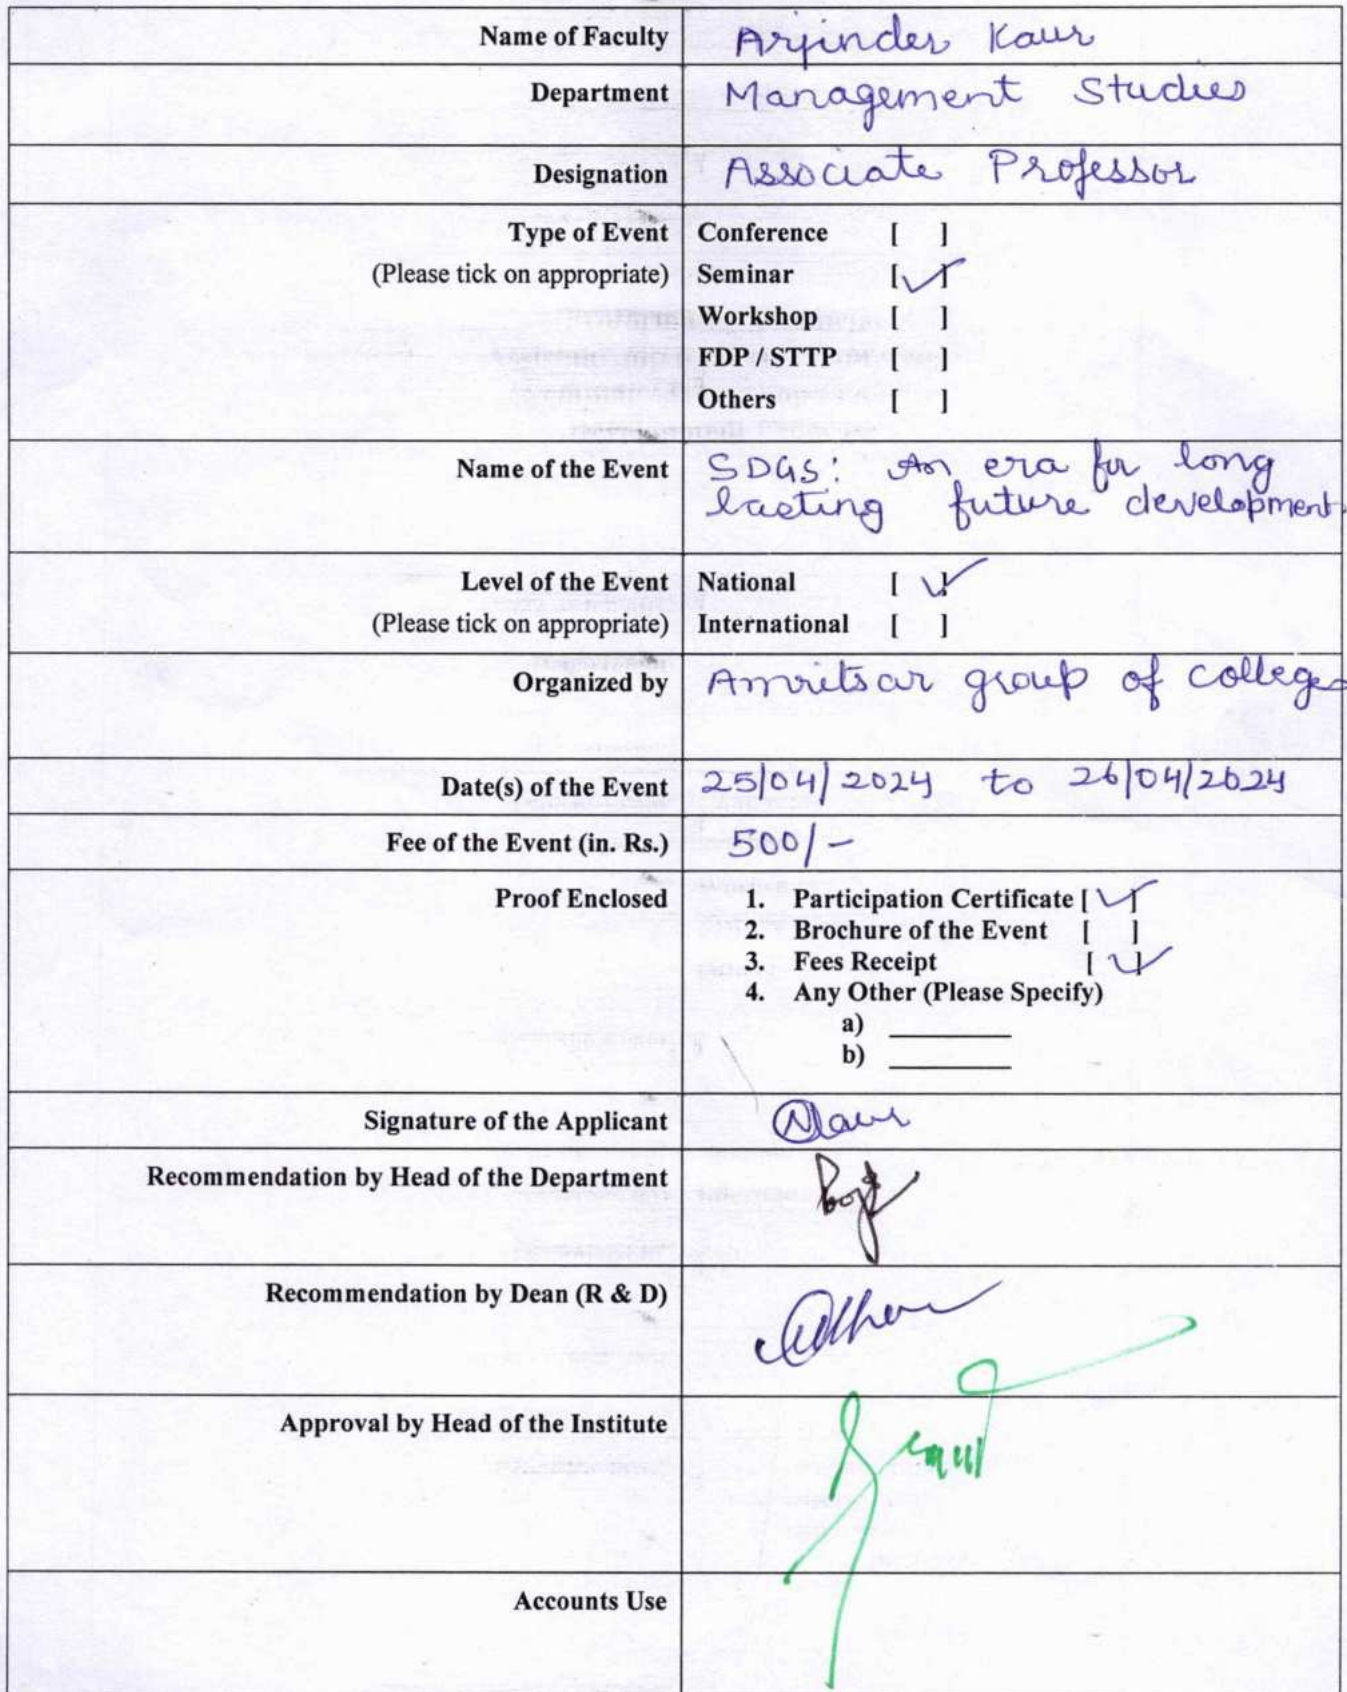 Name of Faculty Arjinder Kaur
Department Management Studies
Designation Associate Professor
Type of Event Conference [ ]
(Please tick on appropriate) Seminar [✓]
Workshop [ ]
FDP / STTP [ ]
Others [ ]
Name of the Event SDGs: An era for long
lasting future development
Level of the Event National [✓]
(Please tick on appropriate) International [ ]
Organized by Amritsar group of colleges
Date(s) of the Event 25/04/2024 to 26/04/2024
Fee of the Event (in. Rs.) 500/-
Proof Enclosed 1. Participation Certificate [✓]
2. Brochure of the Event [ ]
3. Fees Receipt [✓]
4. Any Other (Please Specify)
a) ________
b) ________
Signature of the Applicant
Recommendation by Head of the Department
Recommendation by Dean (R & D)
Approval by Head of the Institute
Accounts Use